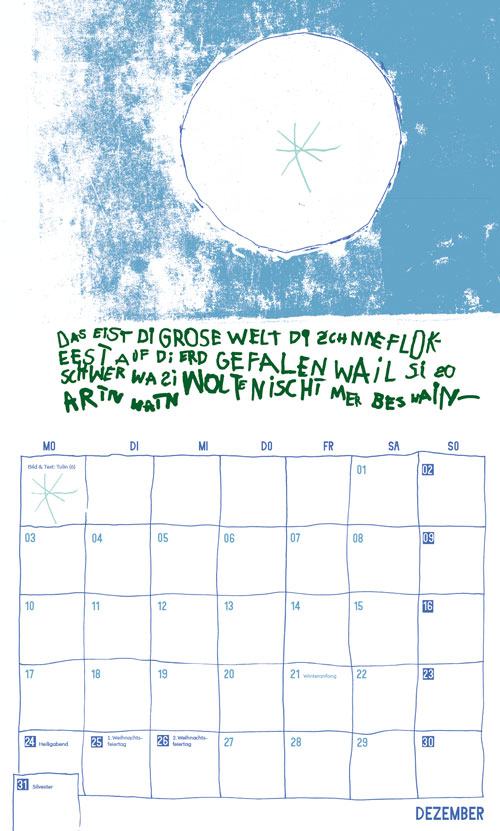 DAS EIST DI GROSE WELT DI ZCHNNEFLOK-
EEST AUF DI ERD GEFALEN WAIL SI SO
SCHWER WA SI WOLTE NISCHT MER BES
MO DI MI DO FR SA SO
Bild & Text: Tulin (6) 01 02
03 04 05 06 07 08 09
10 11 12 13 14 15 16
17 18 19 20 21 Winteranfang 22 23
24 Heiligabend 25 1. Weihnachts-feiertag 26 2. Weihnachts-feiertag 27 28 29 30
31 Silvester
DEZEMBER